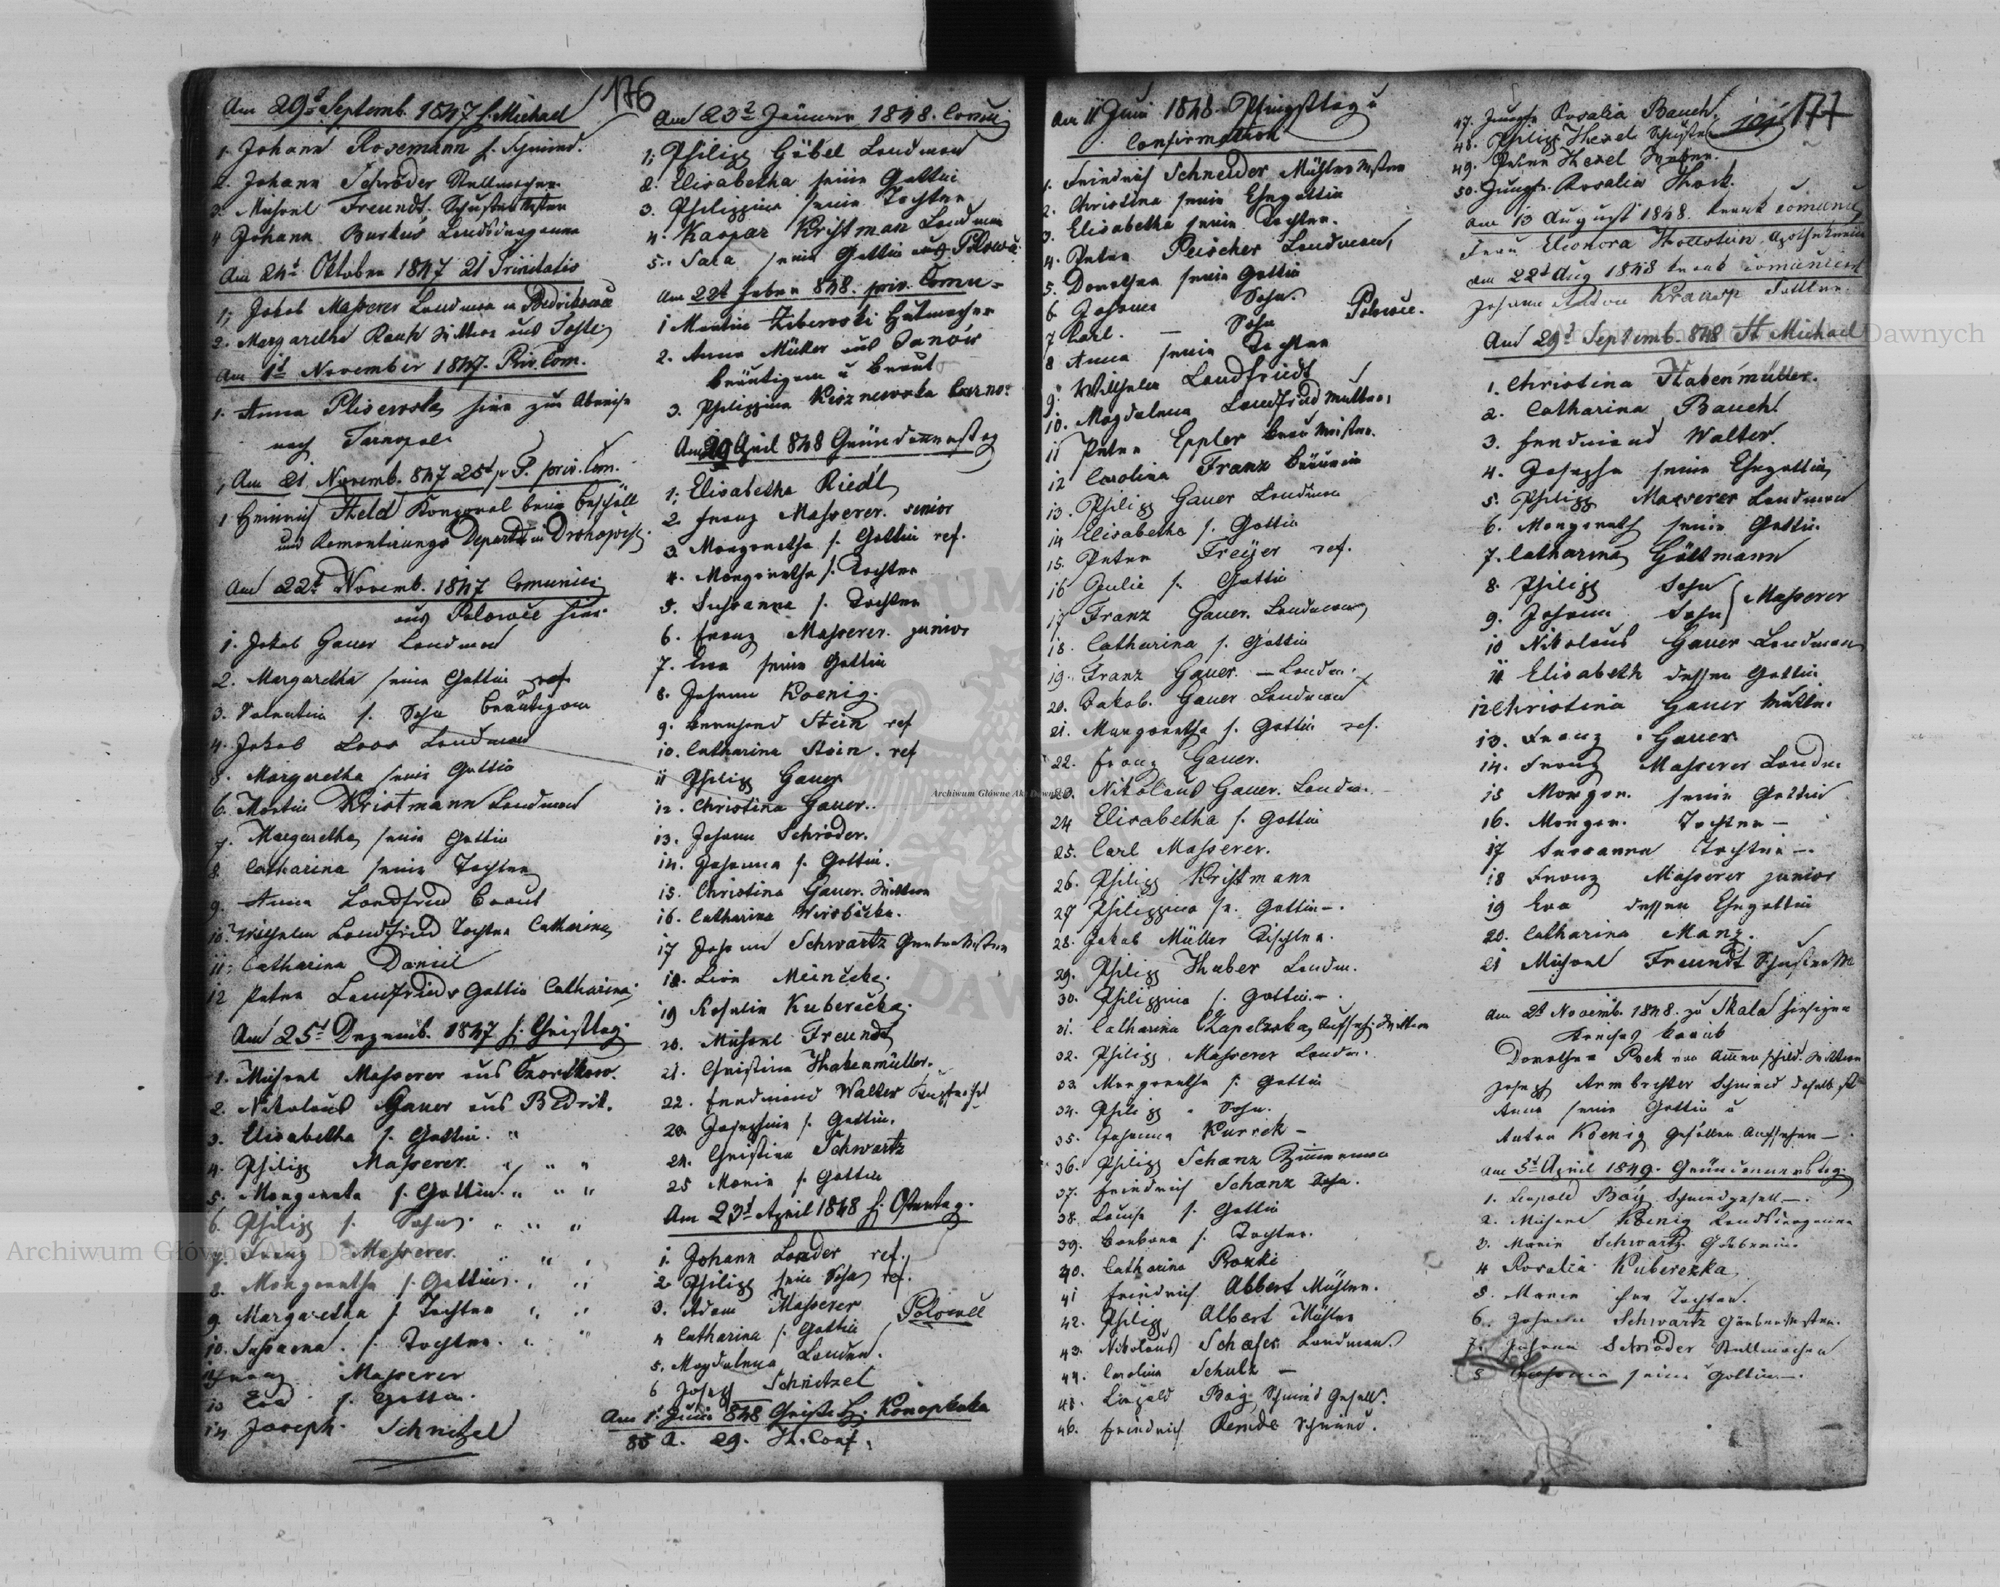 176
Am 29t Septemb. 1847 f. Michael
1. Johann Rosemann f. Schmied.
2. Johann Schröder Stellmacher
3. Michael Freundt. Schuster Mster
4 Johann Burkus
Am 24t Oktober 1847 21 Trinitatis
1; Jakob Masserer Landman in Bedrikowce
2. Margaretha Rauh Wittwe aus
Am 1t November 1847. Priv. Com.
1. Anna Plisewska hier zur Abreise
nach Tarnopol
Am 21 Novemb. 847 25t p. T. priv. Com.
1 Heinrich Held Korporal beim Beschäll
und Remontirungs Departm in Drohowyz.
Am 22t Novemb. 1847 Comunici
aus Polowce hier
1. Jakob Gauer Landman
2. Margaretha seine Gattin ref
3. Valentin s. Sohn Bräutigam
4. Jakob Loos Landman
5. Margaretha seine Gattin
6. Martin Kristmann Landman
7. Margaretha seine Gattin
8. Catharina seine Tochter
9. Anna Landfried Braut
10. Wilhelm Landfried Tochter Catharina
11. Catharina Daniel
12 Peter Landfrieds Gattin Catharina
Am 25t Dezemb. 1847 f. Christtag.
1. Michael Masserer aus Czortkow.
2. Nikolaus Gauer aus Bedrik.
3. Elisabetha s. Gattin. "
4. Philipp Masserer. " " "
5. Margareta s. Gattin. " " "
6. Philipp s. Sohn. " " "
7. Franz Masserer. " " "
8. Margaretha s. Gattin. " "
9. Margaretha s. Tochter " "
10. Susanna. s. Tochter. " "
Franz Masserer
13 Eva s. Gattin.
14 Joseph. Schnitzel
Am 23t Januar 1848. Comuni
1; Philipp Göbel Landman
2. Elisabetha seine Gattin
3. Philippina seine Tochter
4. Kaspar Kristman Landman
5. Sara seine Gattin aus Polowce
Am 22t Feber 848. priv. Comu-
1 Martin Hutmacher
2. Anna Müller aus
Bräutigam u Braut
3. Philippina
Am 20 April 848 Gründonnerstag
1; Elisabetha Riedl
2. Franz Masserer. senior
3. Margaretha s. Gattin ref.
4. Margaretha s. Tochter
5. Susanna s. Tochter
6. Franz Masserer. junior
7. Eva seine Gattin
8. Johann Koenig.
9. Bernhard Stein ref
10. Catharina Stein. ref
11 Philipp Gauer
12. Christina Gauer.
13. Johann Schröder.
14. Johanna s. Gattin.
15. Christina Gauer. Wittwe
16. Catharina Wirsbicka.
17 Johann Schwartz
18. Meincke.
19 Rosalia Kuberecka.
20. Michael Freundt
21. Christina Habenmüller.
22. Ferdinand Walter
23. Josephine s. Gattin.
24. Christina Schwartz
25 Maria s. Gattin
Am 23t April 1848 f. Ostertag.
1. Johann Lander ref.
2. Philipp sein Sohn ref.
3. Adam Masserer
4 Catharina s. Gattin
Polowce
5. Magdalena
6 Joseph Schnitzel
Am 1t Juni 848 Konopkaka
177
Am 11 Juni 1848. Pfingsttag u
Confirmation
1. Friedrich Schneider Müller Mster
2. Christina seine Ehegattin
3. Elisabetha seine Tochter.
4. Peter Peischer Landman,
5. Dorothea seine Gattin
6 Johann Sohn.
7 Carl. — Sohn Polowce.
8 Anna seine Tochter
9. Wilhelm Landfriedt
10. Magdalena Landfried Mutter,
11 Peter Eppler Brau Meister.
12 Carolina Franz Bräuerin
13. Philipp Gauer Landman
14 Elisabetha s. Gattin
15. Peter Freijer ref.
16 Julie s. Gattin
17 Franz Gauer. Landman
18. Catharina s. Gattin
19. Franz Gauer. — Landm.
20. Jakob. Gauer Landman
21. Margaretha s. Gattin ref.
22. Franz Gauer.
23. Nikolaus Gauer. Landm.
24 Elisabetha s. Gattin
25. Carl Masserer.
26. Philipp Kristmann
27 Philippina s. Gattin —.
28. Jakob Müller Tischler.
29. Philipp Huber Landm.
30. Philippina s. Gattin —.
31. Catharina Czapelzska
32. Philipp Masserer Landm.
33. Margaretha s. Gattin
34. Philipp " Sohn.
35. Johanna Kurrek —
36. Philipp Schanz Zimmerman
37. Friedrich Schanz Sohn.
38. Louise s. Gattin
39. Barbara s. Tochter.
40. Catharina Rozki
41 Friedrich Abbert Müller.
42. Philipp Albert Müller
43. Nikolaus Schafer Landman.
44. Carolina Schulz —
45. Leopold Bay Schmid Gesell.
46. Friedrich Schmied.
47. Rosalia Bauch.
48. Philipp Hexel Schuster
49. Peter Hexel
50. Jungfr. Rosalia Hork.
Am 13 August 1848. krank comunic
Frau Eleonora Apothekerin
Am 22t Aug 1848 krank comunicirt
Johann Anton
Am 29t Septemb. 848 St Michael
1. Christina Habenmüller.
2. Catharina Bauch.
3. Ferdinand Walter.
4. Josepha seine Ehegattin
5. Philipp Masserer Landman
6. Margareth seine Gattin.
7. Catharina Göttmann
8. Philipp Sohn
9. Johann Sohn } Masserer
10 Nikolaus Gauer Landman
11 Elisabeth dessen Gattin
12 Christina Gauer Mutter.
13. Franz Gauer
14. Franz Masserer Landm.
15 Margar. seine Gattin
16. Margar. Tochter —
17 Susanna Tochter —.
18 Franz Masserer junior
19 Eva dessen Ehegattin
20. Catharina Manz.
21 Michael Freundt Schuster M
Am 2t Novemb. 1848. zu Skala
Dorothea Wittwe
Joseph Armbrster Schmied daselbst
Anna seine Gattin u
Anton Koenig Gefällen Aufseher —
Am 5t April 1849. Gründonnerstag.
1. Leopold Bay Schmiedgesell —.
2. Michael Koenig
3. Maria Schwartz. Gärberin.
4 Rosalia Kuberezka.
5. Maria ihre Tochter.
6. Johann Schwartz Gärbermster.
7. Johann Schröder Stellmacher
8 Johanna seine Gattin —.
Archiwum Główne Akt Dawnych